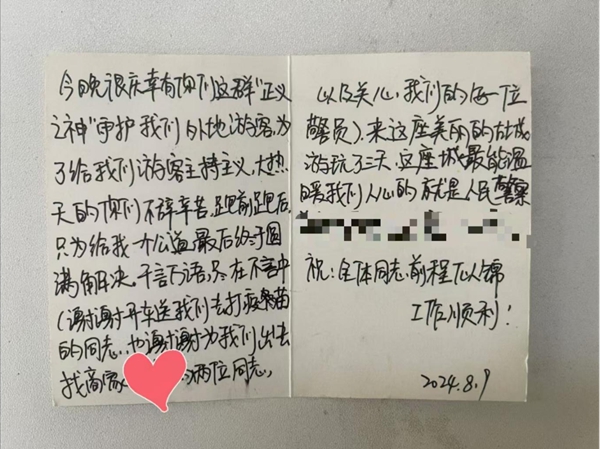 今晚很庆幸有你们这群“正义
之神”守护我们外地游客，为
了给我们游客主持主义，大热
天的你们不辞辛苦，跑前跑后，
只为给我一个公道，最后终于圆
满解决。千言万语，尽在不言中
（谢谢开车送我们去打疫苗
的同志，也谢谢为我们出去
找商家
两位同志，
以及关心我们的每一位
警员），来这座美丽的古城
游玩了三天，这座城最能温
暖我们人心的就是人民警察
祝：全体同志前程似锦
工作顺利！
2024.8.9